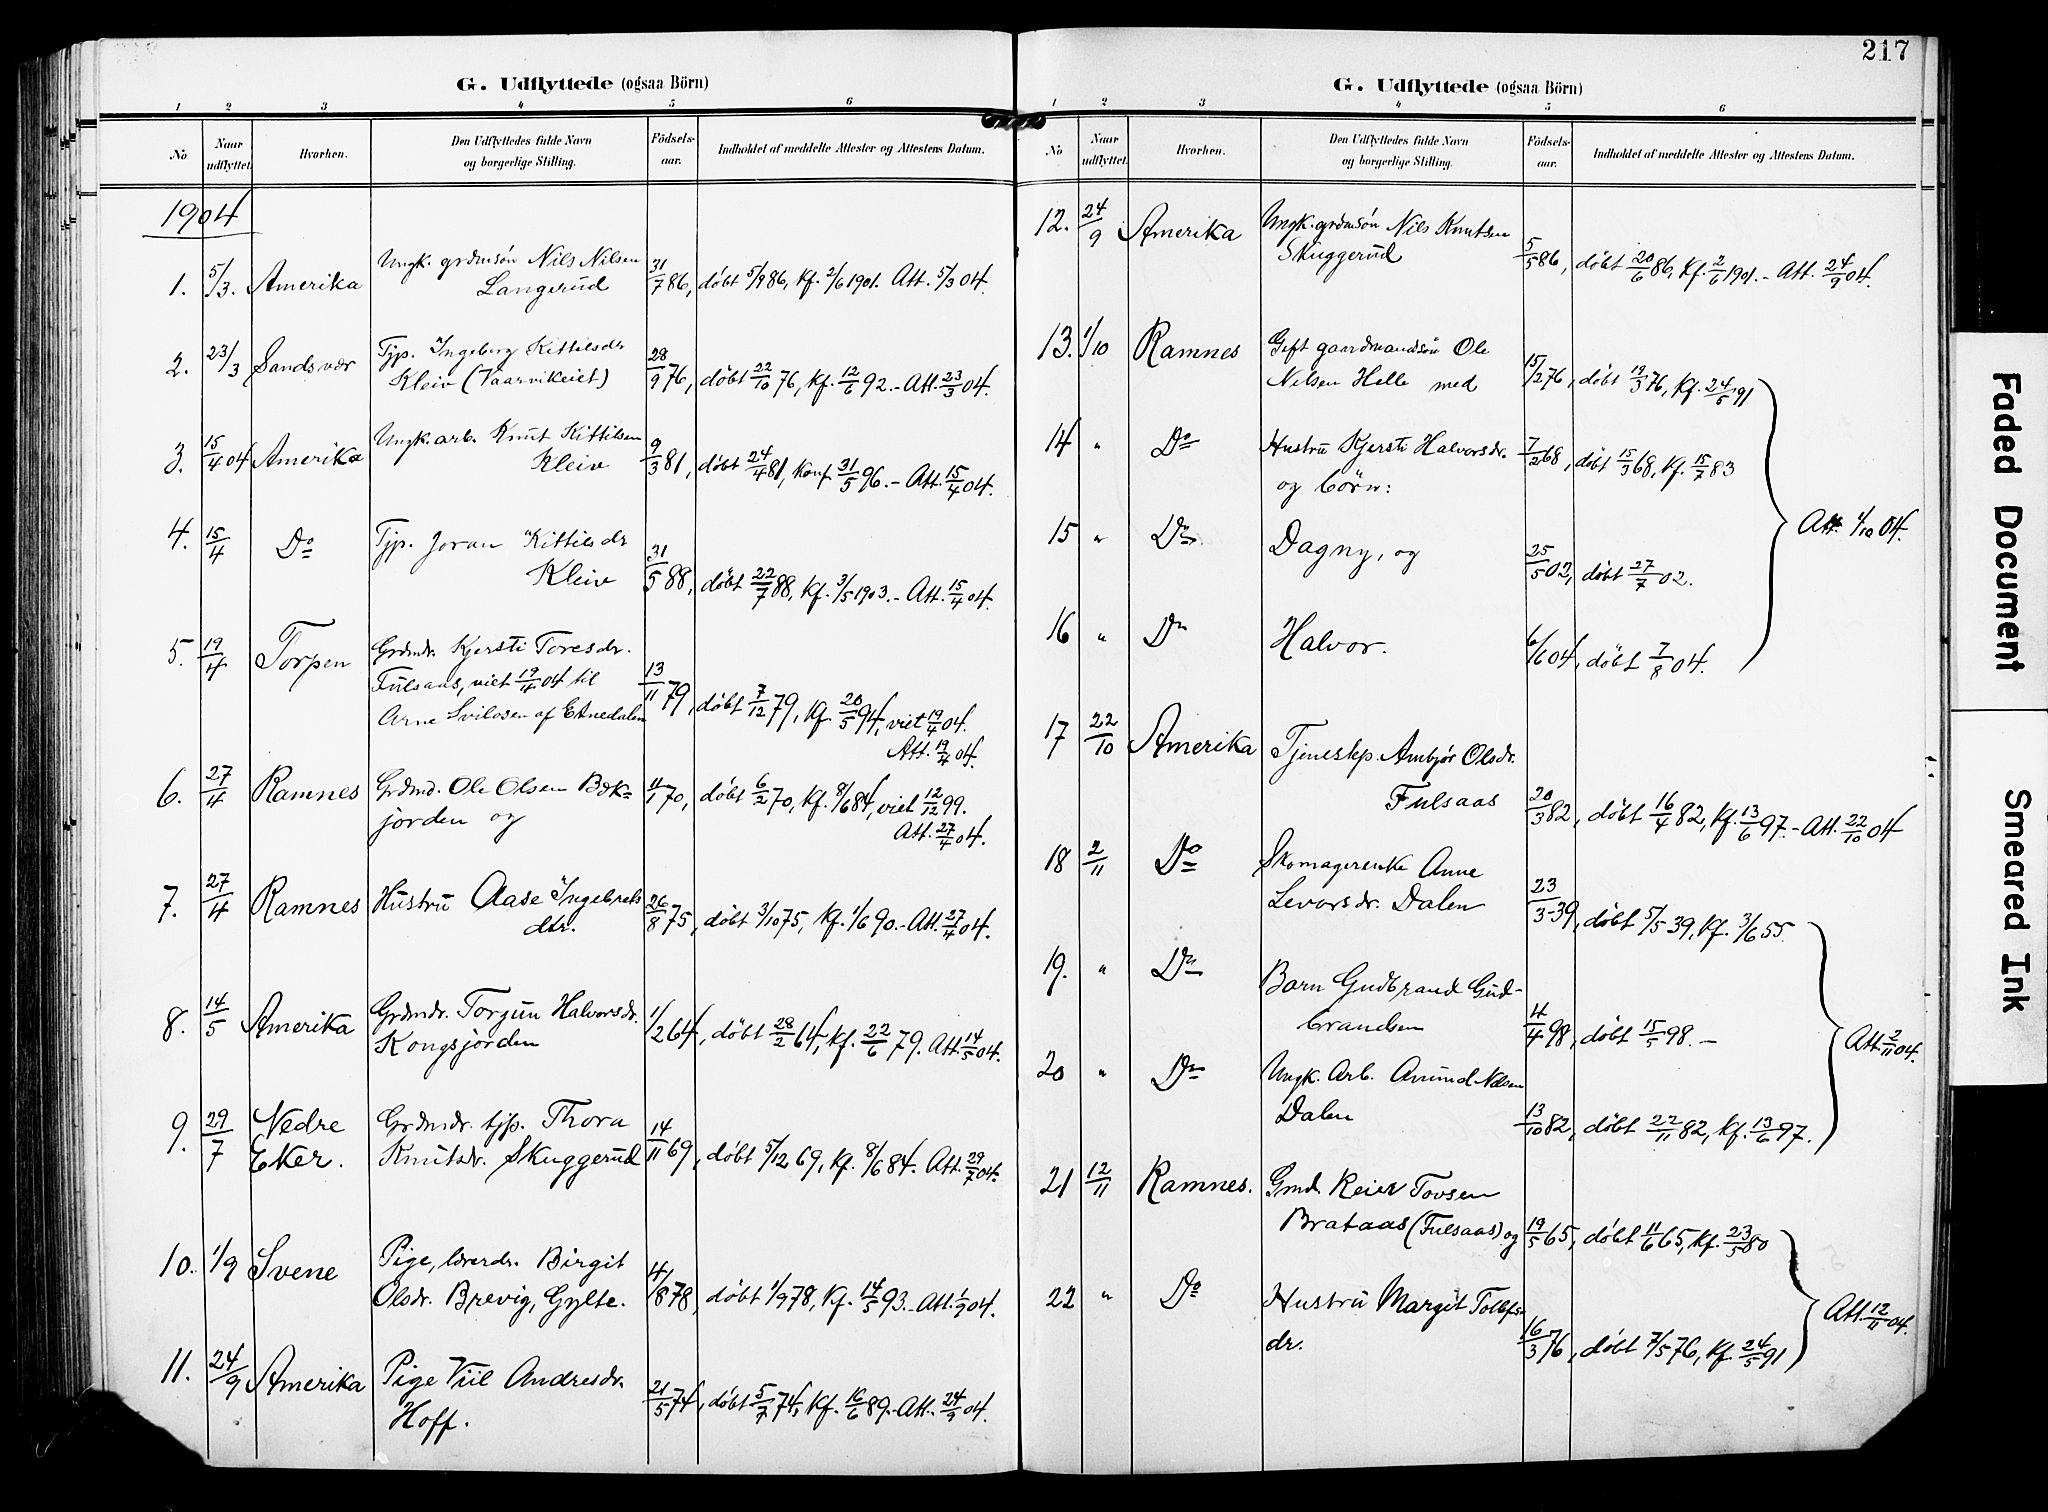 217
G. Udflyttede (ogsaa Börn)
1 2 3 4 5 6
No Naar udflyttet. Hvorhen. Den Udflyttedes fulde Navn og borgerlige Stilling. Födsels-aar. Indholdet af meddelte Attester og Attestens Datum.
1904
1. 5/3. Amerika Ungk. grdmsön Nils Nilsen
Langerud 31/7 86, döbt 5/9 86, Kf. 2/6 1901. Att. 5/3 04.
2. 23/3 Sandsvær Tjp. Ingeborg Kittilsdr
Kleiv (Vaarvikeiet) 28/9 76, döbt 22/10 76, Kf. 12/6 92. - Att. 23/3 04.
3. 15/4 04 Amerika Ungk. arb. Knut Kittilsen
Kleiv 9/3 81, döbt 24/4 81, Konf. 31/5 96. - Att. 15/4 04.
4. 15/4 Do Tjp. Joran Kittilsdr
Kleiv 31/5 88, döbt 22/7 88, Kf. 3/5 1903. - Att. 15/4 04.
5. 19/4 Torpen Grdmdr. Kjersti Toresdr.
Fulsaas, viet 19/4 04 til 13/11 79, döbt 7/12 79, Kf. 20/5 94, viet 19/4 04.
Arne af Etnedalen
Att. 19/4 04.
6. 27/4 Ramnes Grdmd. Ole Olsen Bæk=
jorden og 11/1 70, döbt 6/2 70, Kf. 8/6 84, viet 12/12 99.
Att. 27/4 04.
7. 27/4 Ramnes Hustru Aase Ingebrets
dtr. 26/8 75, döbt 3/10 75, Kf. 1/6 90. - Att. 27/4 04.
8. 14/5 Amerika Grdmdr. Torgun Halvorsdr.
Kongsjorden 1/2 64, döbt 28/2 64, Kf. 22/6 79. Att. 14/5 04.
9. 29/7 Nedre Eker. Grdmdr. tjp. Thora
Knutsdr. Skuggerud 14/11 69, döbt 5/12 69, Kf. 8/6 84. Att. 29/7 04.
10. 1/9 Svene Pige, lærerdr. Birgit
Olsdr. Brevig, Gylte. 4/8 78, döbt 1/9 78, Kf. 14/5 93. - Att. 1/9 04.
11. 24/9 Amerika Pige Viil Andresdr.
Hoff. 21/5 74, döbt 5/7 74, Kf. 16/6 89. - Att. 24/9 04.
G. Udflyttede (ogsaa Börn)
1 2 3 4 5 6
No Naar udflyttet. Hvorhen. Den Udflyttedes fulde Navn og borgerlige Stilling. Födsels-aar. Indholdet af meddelte Attester og Attestens Datum.
12. 24/9 Amerika Ungk. grdmsön Nils Knutsen
Skuggerud 5/5 86, döbt 20/6 86, Kf. 2/6 1901. - Att. 24/9 04.
13. 1/10 Ramnes Gift gaardmandsön Ole
Nilsen Helle med 15/2 76, döbt 19/3 76, Kf. 24/5 91
14 " Do Hustru Kjersti Halvorsdr. 7/2 68, döbt 15/3 68, Kf. 15/7 83
og börn:
Att. 1/10 04.
15 " Do Dagny, og 25/5 02, döbt 27/7 02.
16 " Do Halvor. 6/6 04, döbt 7/8 04.
17 22/10 Amerika Tjenestp. Ambjör Olsdr.
Fulsaas 20/3 82, döbt 16/4 82, Kf. 13/6 97. - Att. 22/10 04
18 2/11 Do Skomagerenke Anne
Levorsdr. Dalen 23/3 39, döbt 5/5 39, Kf. 3/6 55.
19. " Do Barn Gudbrand Gud-
brandsen 4/4 98, döbt 15/5 98. -
Att. 2/11 04.
20 " Do Ungk. Arb. Amund Nilsen
Dalen 13/10 82, döbt 22/11 82, Kf. 13/6 97.
21 12/11 Ramnes. Gmd. Reier Tovsen
Brataas (Fulsaas) og 19/5 65, döbt 11/6 65, Kf. 23/5 80
22 " Do Hustru Margit Tollefs-
dr. 16/3 76, döbt 7/5 76, Kf. 24/5 91
Att. 12/11 04.
Faded Document
Smeared Ink